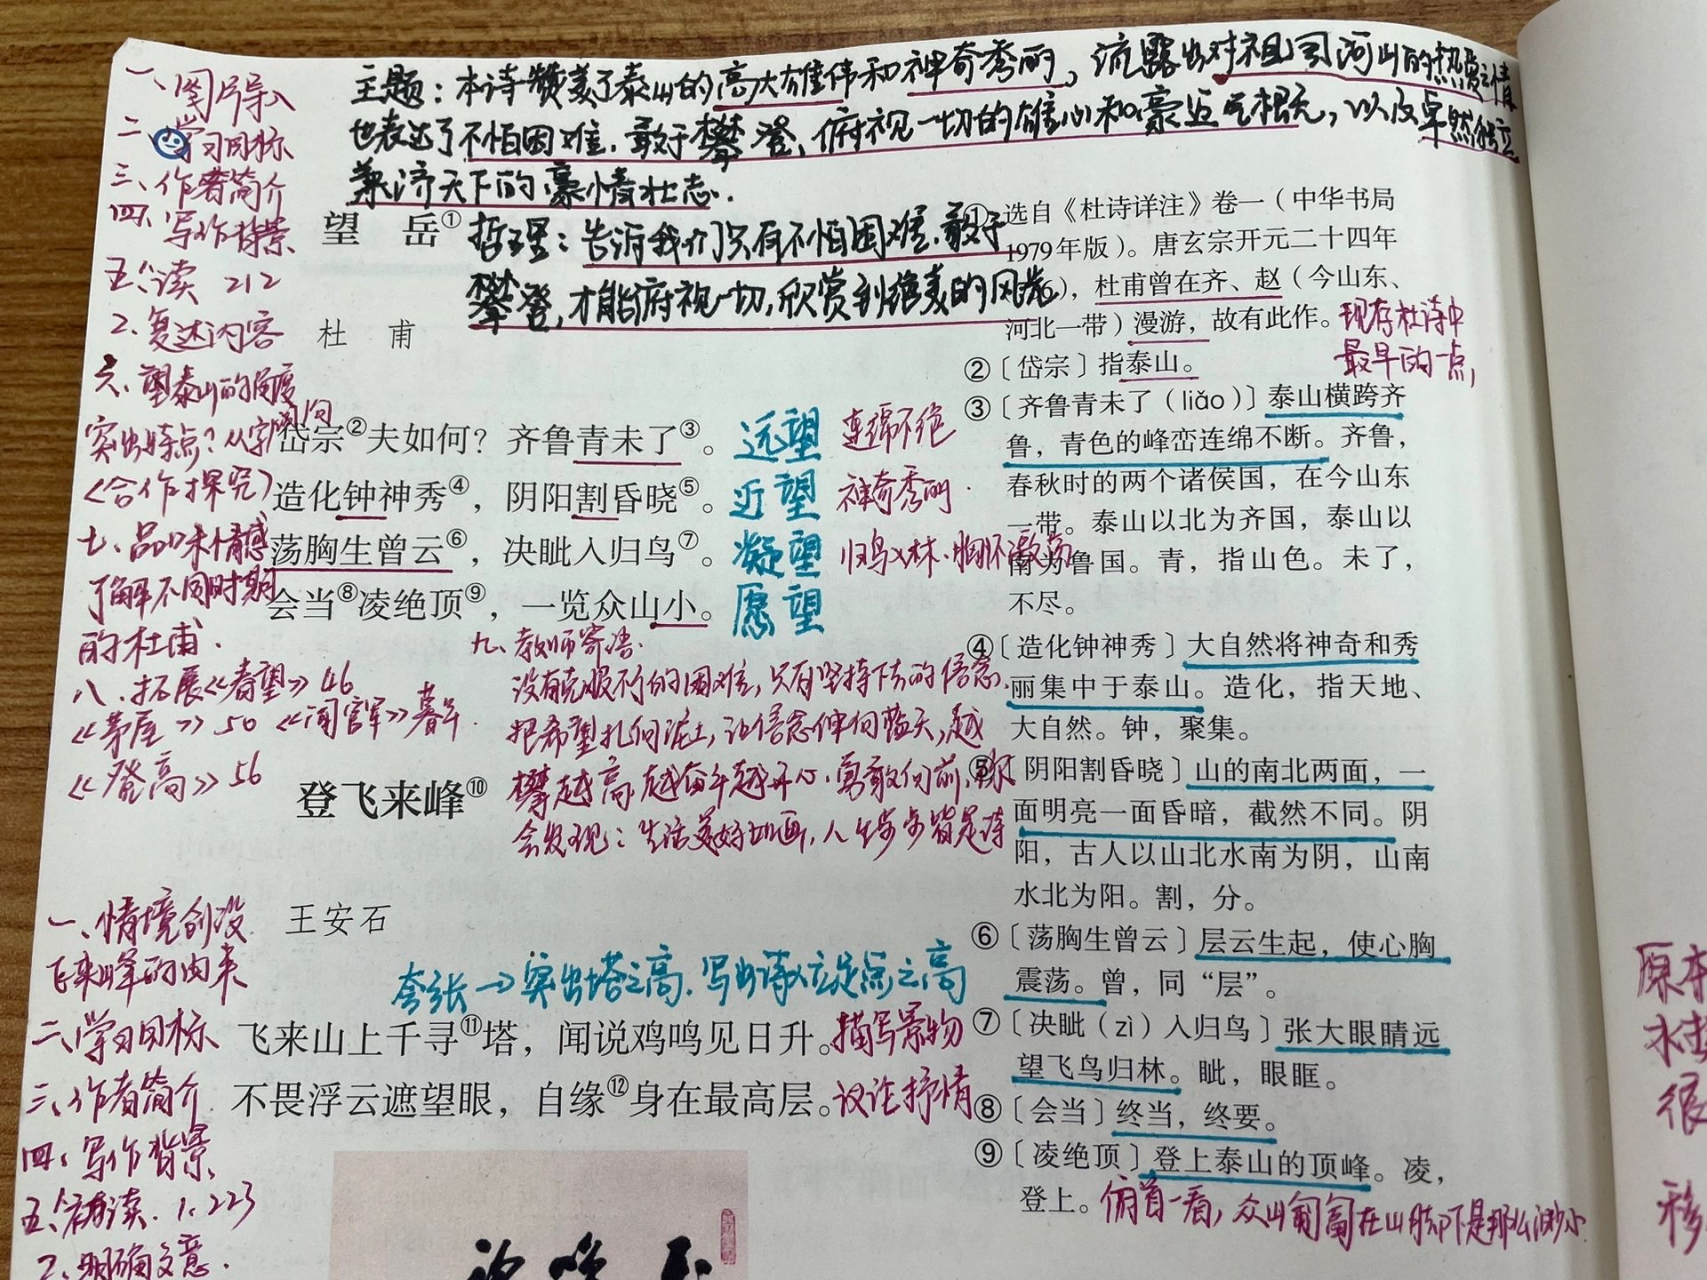 主题：本诗赞美了泰山的高大雄伟和神奇秀丽，流露出对祖国河山的热爱之情
也表达了不怕困难，敢于攀登，俯视一切的雄心和豪迈气概，以及卓然独立
兼济天下的豪情壮志.
哲理：告诉我们只有不怕困难，敢于
攀登，才能俯视一切，欣赏到绝美的风光
一、图片导入
二、学习目标
三、作者简介
四、写作背景
五、读 212
2、复述内容
六、望泰山的角度
突出特点？从字
<合作探究>
七、品味情感
了解不同时期
的杜甫.
八、拓展《春望》46
《茅屋》50 《闻官军》暮年.
《登高》56
望 岳①
杜 甫
岱宗②夫如何？齐鲁青未了③。远望 连绵不绝
造化钟神秀④，阴阳割昏晓⑤。近望 神奇秀丽.
荡胸生曾云⑥，决眦入归鸟⑦。凝望 归鸟入林，胸怀激荡
会当⑧凌绝顶⑨，一览众山小。愿望
九、教师寄语.
没有克服不了的困难，只有坚持下去的信念.
把希望扎向泥土，让信念伸向蓝天，越
攀越高，越奋斗越开心，勇敢向前，你
会发现：生活美好如画，人生步步皆是诗
登飞来峰⑩
王安石
一、情境创设
飞来峰的由来
二、学习目标
三、作者简介
四、写作背景
五、诵读. 1、223
2、明确文意.
夸张→突出塔之高，写出诗人立足点之高
飞来山上千寻⑪塔，闻说鸡鸣见日升。描写景物
不畏浮云遮望眼，自缘⑫身在最高层。议论抒情
①选自《杜诗详注》卷一（中华书局
1979年版）。唐玄宗开元二十四年
6），杜甫曾在齐、赵（今山东、
河北一带）漫游，故有此作。
现存杜诗中
最早的一点，
②〔岱宗〕指泰山。
③〔齐鲁青未了（liǎo）〕泰山横跨齐
鲁，青色的峰峦连绵不断。齐鲁，
春秋时的两个诸侯国，在今山东
一带。泰山以北为齐国，泰山以
南为鲁国。青，指山色。未了，
不尽。
④〔造化钟神秀〕大自然将神奇和秀
丽集中于泰山。造化，指天地、
大自然。钟，聚集。
⑤〔阴阳割昏晓〕山的南北两面，一
面明亮一面昏暗，截然不同。阴
阳，古人以山北水南为阴，山南
水北为阳。割，分。
⑥〔荡胸生曾云〕层云生起，使心胸
震荡。曾，同“层”。
⑦〔决眦（zì）入归鸟〕张大眼睛远
望飞鸟归林。眦，眼眶。
⑧〔会当〕终当，终要。
⑨〔凌绝顶〕登上泰山的顶峰。凌，
登上。俯首一看，众山匍匐在山脚下是那么渺小
原本
很
移